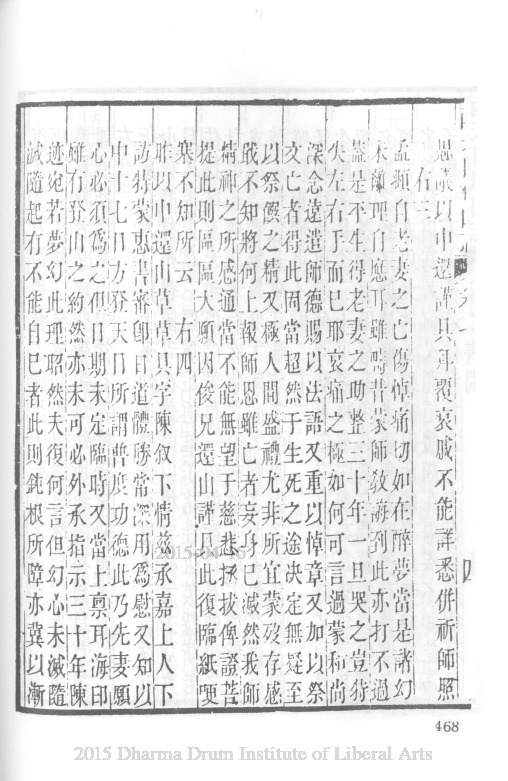 思議以申還謹具拜覆哀戚不能詳悉併祈師照
右三
孟頫自老妻之亡傷悼痛切如在醉夢當是諸幻
未離理自應耳雖疇昔蒙師敎誨到此亦打不過
蓋是平生得老妻之助整三十年一旦哭之豈特
失左右手而已耶哀痛之極如何可言過蒙和尚
深念遠遣師德賜以法語又重以悼章又加以祭
文亡者得此固當超然于生死之途决定無疑至
以祭饌之精又極人間盛禮尤非所宜蒙歿存感
戢不知將何上報師恩雖亡者妄身已滅然我師
精神之所感通當不能無望于慈悲拯拔俾證菩
提此則區區大願因俊兄還山謹具此復臨紙哽
塞不知所云 右四
昨以中還山草草具字陳叙下情兹承嘉上人下
訪特蒙惠書審卽日道體勝常深用爲慰又知以
中十七日方登天目所謂普度功德此乃先妻願
心必須爲之但日期未定臨時又當上禀耳海印
雖有登山之約然亦未可必外承指示三十年陳
迹宛若夢幻此理昭然夫復何言但幻心未滅隨
滅隨起有不能自已者此則鈍根所障亦冀以漸
四
468
2015/04/16
2015 Dharma Drum Institute of Liberal Arts